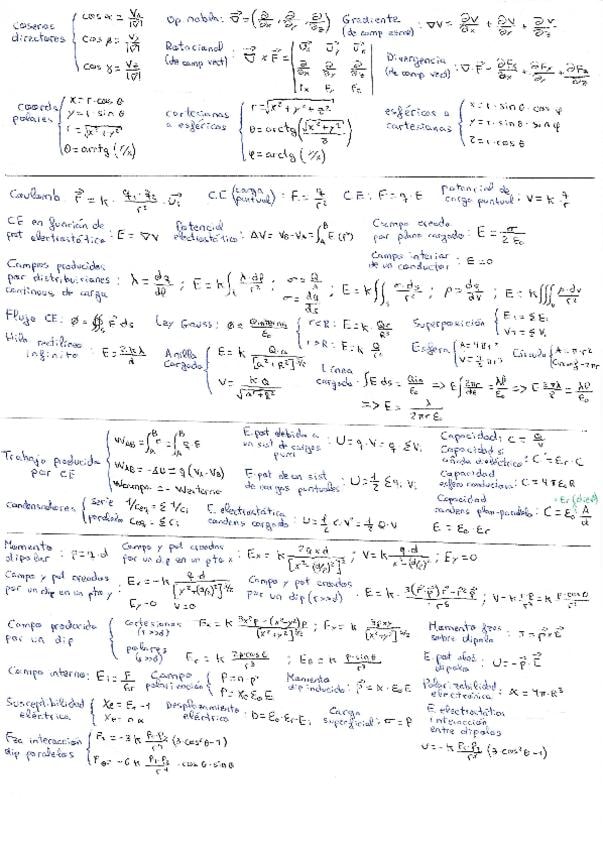 cosenos directores { cos α = Vx/|V|
cos β = Vy/|V|
cos γ = Vz/|V|
Op. nabla: ∇ = (∂/∂x, ∂/∂y, ∂/∂z)
Gradiente (de camp escal): ∇V = ∂V/∂x + ∂V/∂y + ∂V/∂z
Rotacional (de camp vect): ∇ x F =
∂/∂x ∂/∂y ∂/∂z
Fx Fy Fz
Divergencia (de camp vect): ∇·F = ∂Fx/∂x + ∂Fy/∂y + ∂Fz/∂z
coords polares { x = r·cos θ
y = r·sin θ
r = √x²+y²
cartesianas a esféricas { r = √x²+y²+z²
θ = arctg (√x²+y²/z)
esféricas a cartesianas { x = r·sin θ·cos φ
y = r·sin θ·sin φ
z = r·cos θ
Coulomb: F = K · q1·q2/r² · ur
CE (carga puntual): E = K q/r²
CE: F = q·E
potencial de carga puntual: V = K q/r
CE en función de pot electrostático: E = ∇V
Potencial electrostático: ΔV = VB - VA = ∫
Campo creado por plano cargado: E = σ/2ε0
Campo interior de un conductor: E = 0
Campos producidos por distribuciones continuas de carga: λ = dq/dl ; E = K∫ λ·dl/r² ; σ = ; E = K∬ σ·ds/r² ; ρ = dq/dV ; E = K∭ ρ·dv/r²
Flujo CE: Ø = ∯ E ds
Ley Gauss: Ø = Q interna/ε0 { r<R: E = K · Qr/R³
r>R: E = K Q/r²
Superposición { Ei = Σ Ei
VT = Σ Vi
Hilo rectilíneo infinito: E = 2·K·λ/d
Anillo cargado { E = K Q·a/[a²+R²]^3/2
V = KQ/√a²+R²
Línea cargada: ∫E ds = Qin/ε0 => E∫2πr dl = λl/ε0
=> E = λ/2πrε0
Esfera { A = 4πr²
Círculo { A = π·r²
Trabajo producido por CE { WAB =
WAB = -ΔU = q(VA - VB)
Wcampo = - Wexterno
E. pot debida a un sist de cargas: U = q·V = q·ΣVi
E. pot de un sist de cargas puntuales: U = 1/2 Σ qi Vi
Capacidad: C = Q/V
dieléctrico: C' = εr·C
Capacidad esfera conductora: C = 4πε0R
condensadores { serie 1/Ceq = Σ 1/Ci
paralelo Ceq = Σ Ci
E. electrostática condens cargado: U = 1/2 C·V² = 1/2 Q·V
Capacidad condens plan-paralelo: C = ε0 A/d
E = E0·Er
Momento dipolar: p = q·d
Campo y pot creados por un dip en un pto x: Ex = K 2qxd/[x²-(d/2)²]² ; V = K q·d/x²-(d/2)² ; Ey = 0
Campo y pot creados por un dip en un pto y: Ex = -K q·d/[y²+(d/2)²]^3/2
Ey = 0 V = 0
Campo y pot creados por un dip (r>>d): E = K · 3(p·r)r - r²p/r⁵ ; V = K · p·r/r³ = K p·cosθ/r²
Campo producido por un dip { cartesianas (r>>d)
polares (r>>d) Er = K 2p cosθ/r³ ; Eθ = K p·sinθ/r³
Momento fzas sobre dipolo: τ = p x E
E. pot alos dipolo: U = -p·E
Campo interno: Ei = E/εr
Campo polarización { P = n·p
P = Xe ε0 E
Momento dip inducido: p = α·ε0E
Polarizabilidad electrónica: α = 4π·R³
Susceptibilidad eléctrica { Xe = εr - 1
Xe = n·α
Desplazamiento eléctrico: D = ε0·εr·Ei
Carga superficial: σ = P
E. electrostática interacción entre dipolos
U = -K p1·p2/r³ (3·cos²θ - 1)
Fza interacción dip paralelos { Fr = -3K p1·p2/r⁴ (3·cos²θ - 1)
Fθ = -6K p1·p2/r⁴ · cosθ·sinθ